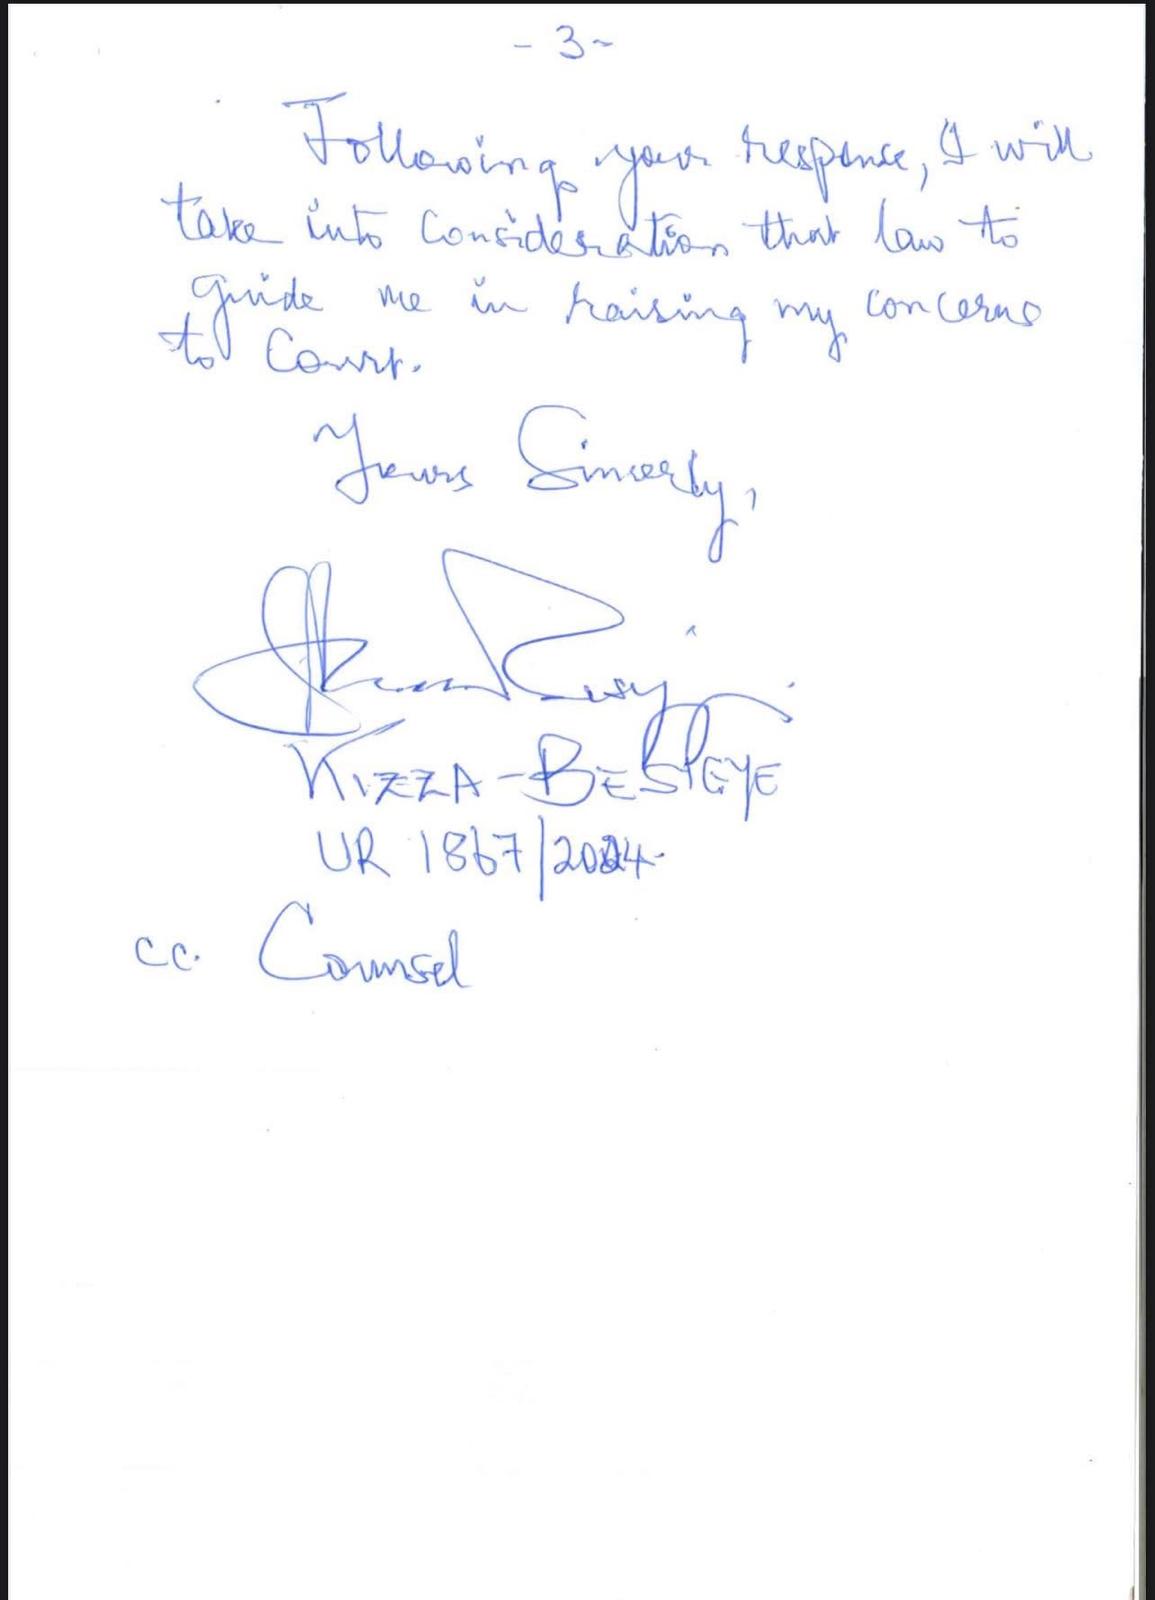 - 3 -
Following your response, I will
take into consideration that law to
guide me in raising my concerns
to Court.
Yours Sincerly,
KIZZA-BESIGYE
UR 1867/2024.
cc. Counsel